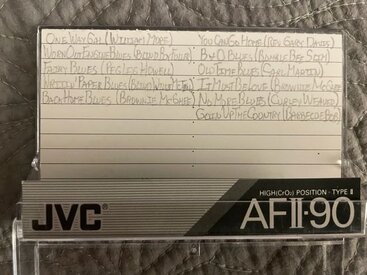 ONE WAY GAL (WILLIAM MOORE)
WORN OUT ENGINE BLUES (BLIND BOY FULLER)
FAIRY BLUES (PEG LEG HOWELL)
PAPER BLUES (BLIND WILLIE MCTELL)
BACK HOME BLUES (BROWNIE MCGHEE)
YOU CAN GO HOME (REV. GARY DAVIS)
B & O BLUES (BUMBLE BEE SLIM)
OLD TIME BLUES (CARL MARTIN)
IT MUST BE LOVE (BROWNIE MCGHEE)
NO MORE BLUES (CURLEY WEAVER)
GOING UP THE COUNTRY (BARBECUE BOB)
HIGH(CrO2) POSITION · TYPE II
JVC
AFII·90